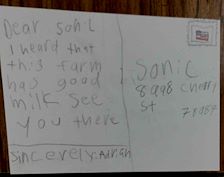 Dear Sonic
I heard that
this farm
has good
milk see
you there
Sincerely: Adrian
Sonic
8998 Cherry
St